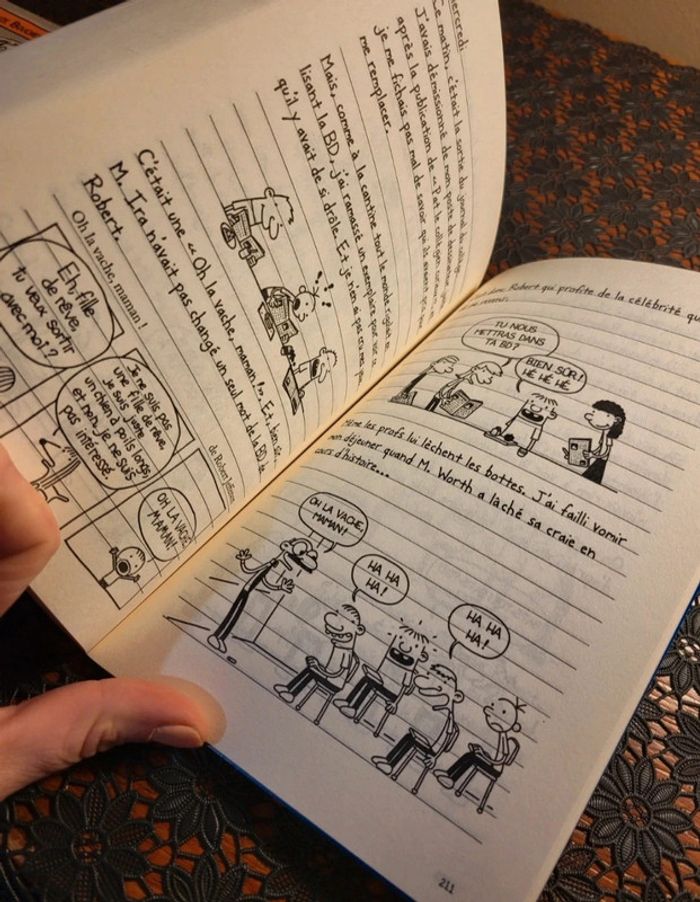 Mercredi
Ce matin, c'était la sortie du journal du collège.
J'avais démissionné de mon poste de dessinateur
après la publication de « P'tet le collégien
je me fichais pas mal de savoir qui ils avaient
me remplacer.
Mais, comme à la cantine tout le monde rigolait en
lisant la BD, j'ai ramassé un exemplaire pour voir ce
qu'il y avait de si drôle. Et je n'en ai pas cru mes yeux.
C'était une « Oh la vache, maman ! ». Et, bien sûr,
M. Ira n'avait pas changé un seul mot de la BD de
Robert.
Oh la vache, maman !
de Robert Jefferson
Eh, fille
de rêve,
tu veux sortir
avec moi ?
Je ne suis pas
une fille de rêve,
je suis votre
un chien à poils longs,
et non, je ne suis
pas intéressé.
OH LA VACHE,
MAMAN !
donc Robert qui profite de la célébrité qu
TU NOUS
METTRAS DANS
TA BD ?
BIEN SÛR !
HÉ HÉ HÉ
Même les profs lui lèchent les bottes. J'ai failli vomir
mon déjeuner quand M. Worth a lâché sa craie en
cours d'histoire...
OH LA VACHE,
MAMAN !
HA HA
HA !
HA HA
HA !
211